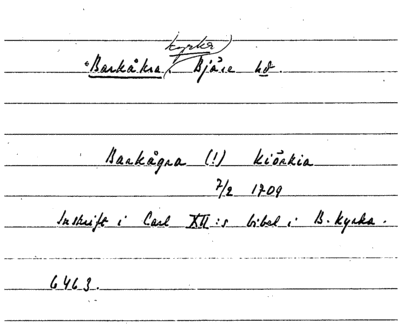 kyrka
Barkåkra, Bjäre hd.
Barkågra (!) Kiörkia
7/2 1709
Inskrift i Carl XII:s bibel i B. kyrka.
6463.